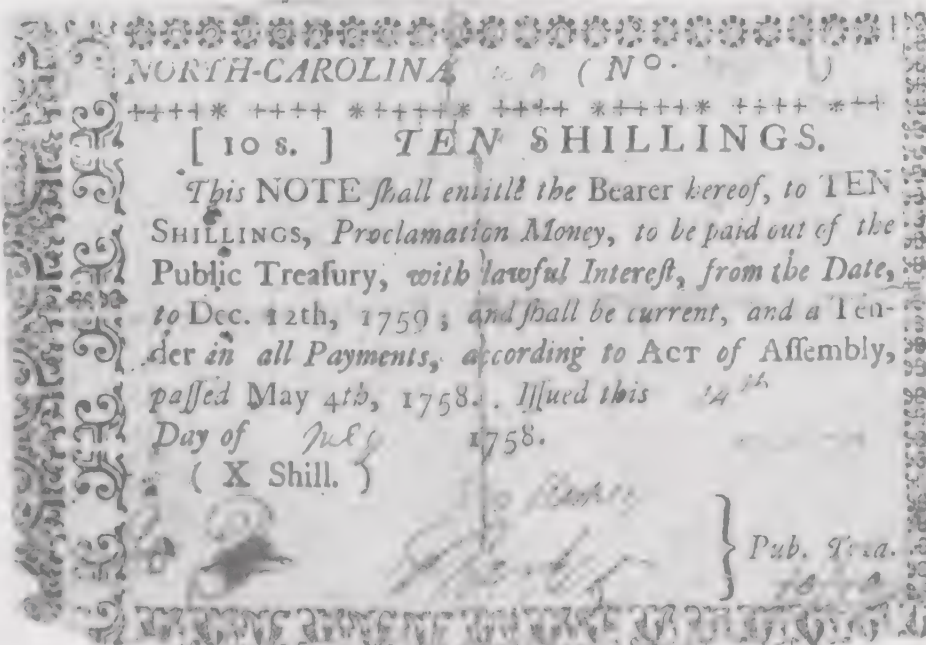 NORTH-CAROLINA ( No. )
[ 10 s. ] TEN SHILLINGS.
This NOTE ſhall entitle the Bearer hereof, to TEN
SHILLINGS, Proclamation Money, to be paid out of the
Public Treaſury, with lawful Intereſt, from the Date,
to Dec. 12th, 1759; and ſhall be current, and a Ten-
der in all Payments, according to ACT of Aſſembly,
paſſed May 4th, 1758. Iſſued this 14th
Day of July 1758.
( X Shill. )
} Pub. Trea.